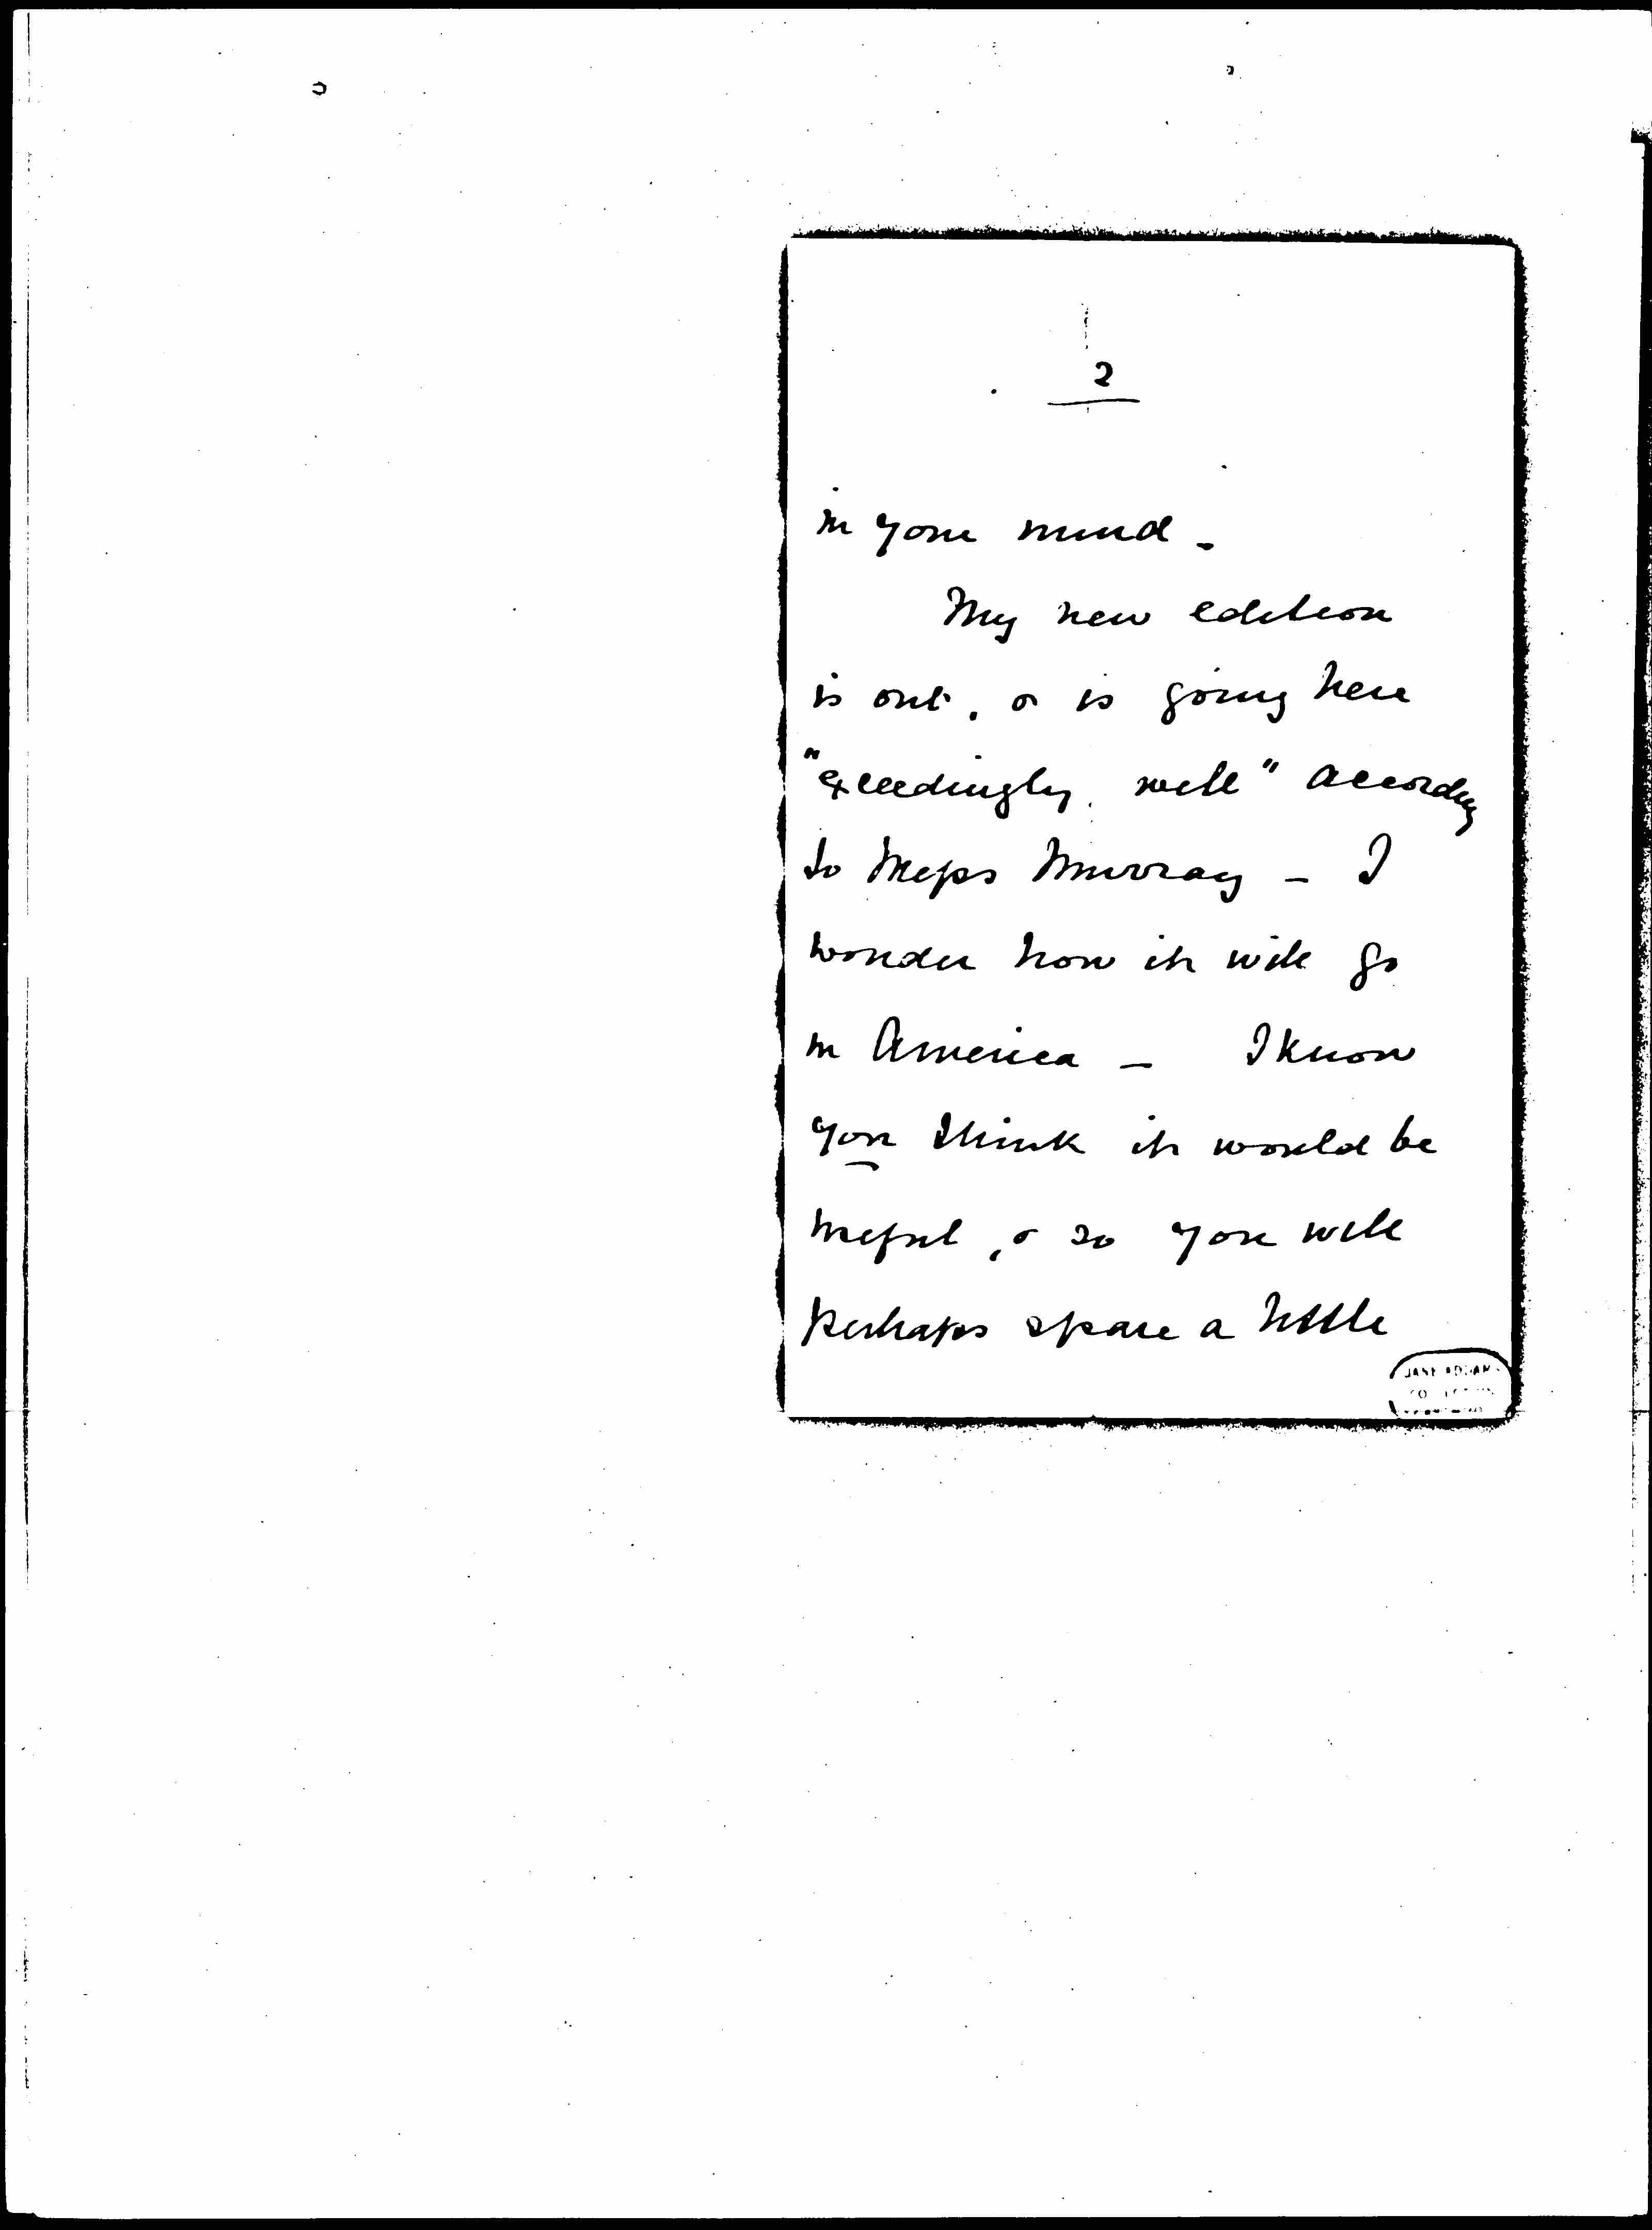 2
in your mind -
My new edition
is out, & is going here
"exceedingly well" according
to Messrs Murray - I
wonder how it will go
in America - I know
you think it would be
useful, & so you will
perhaps spare a little
JANE ADDAMS